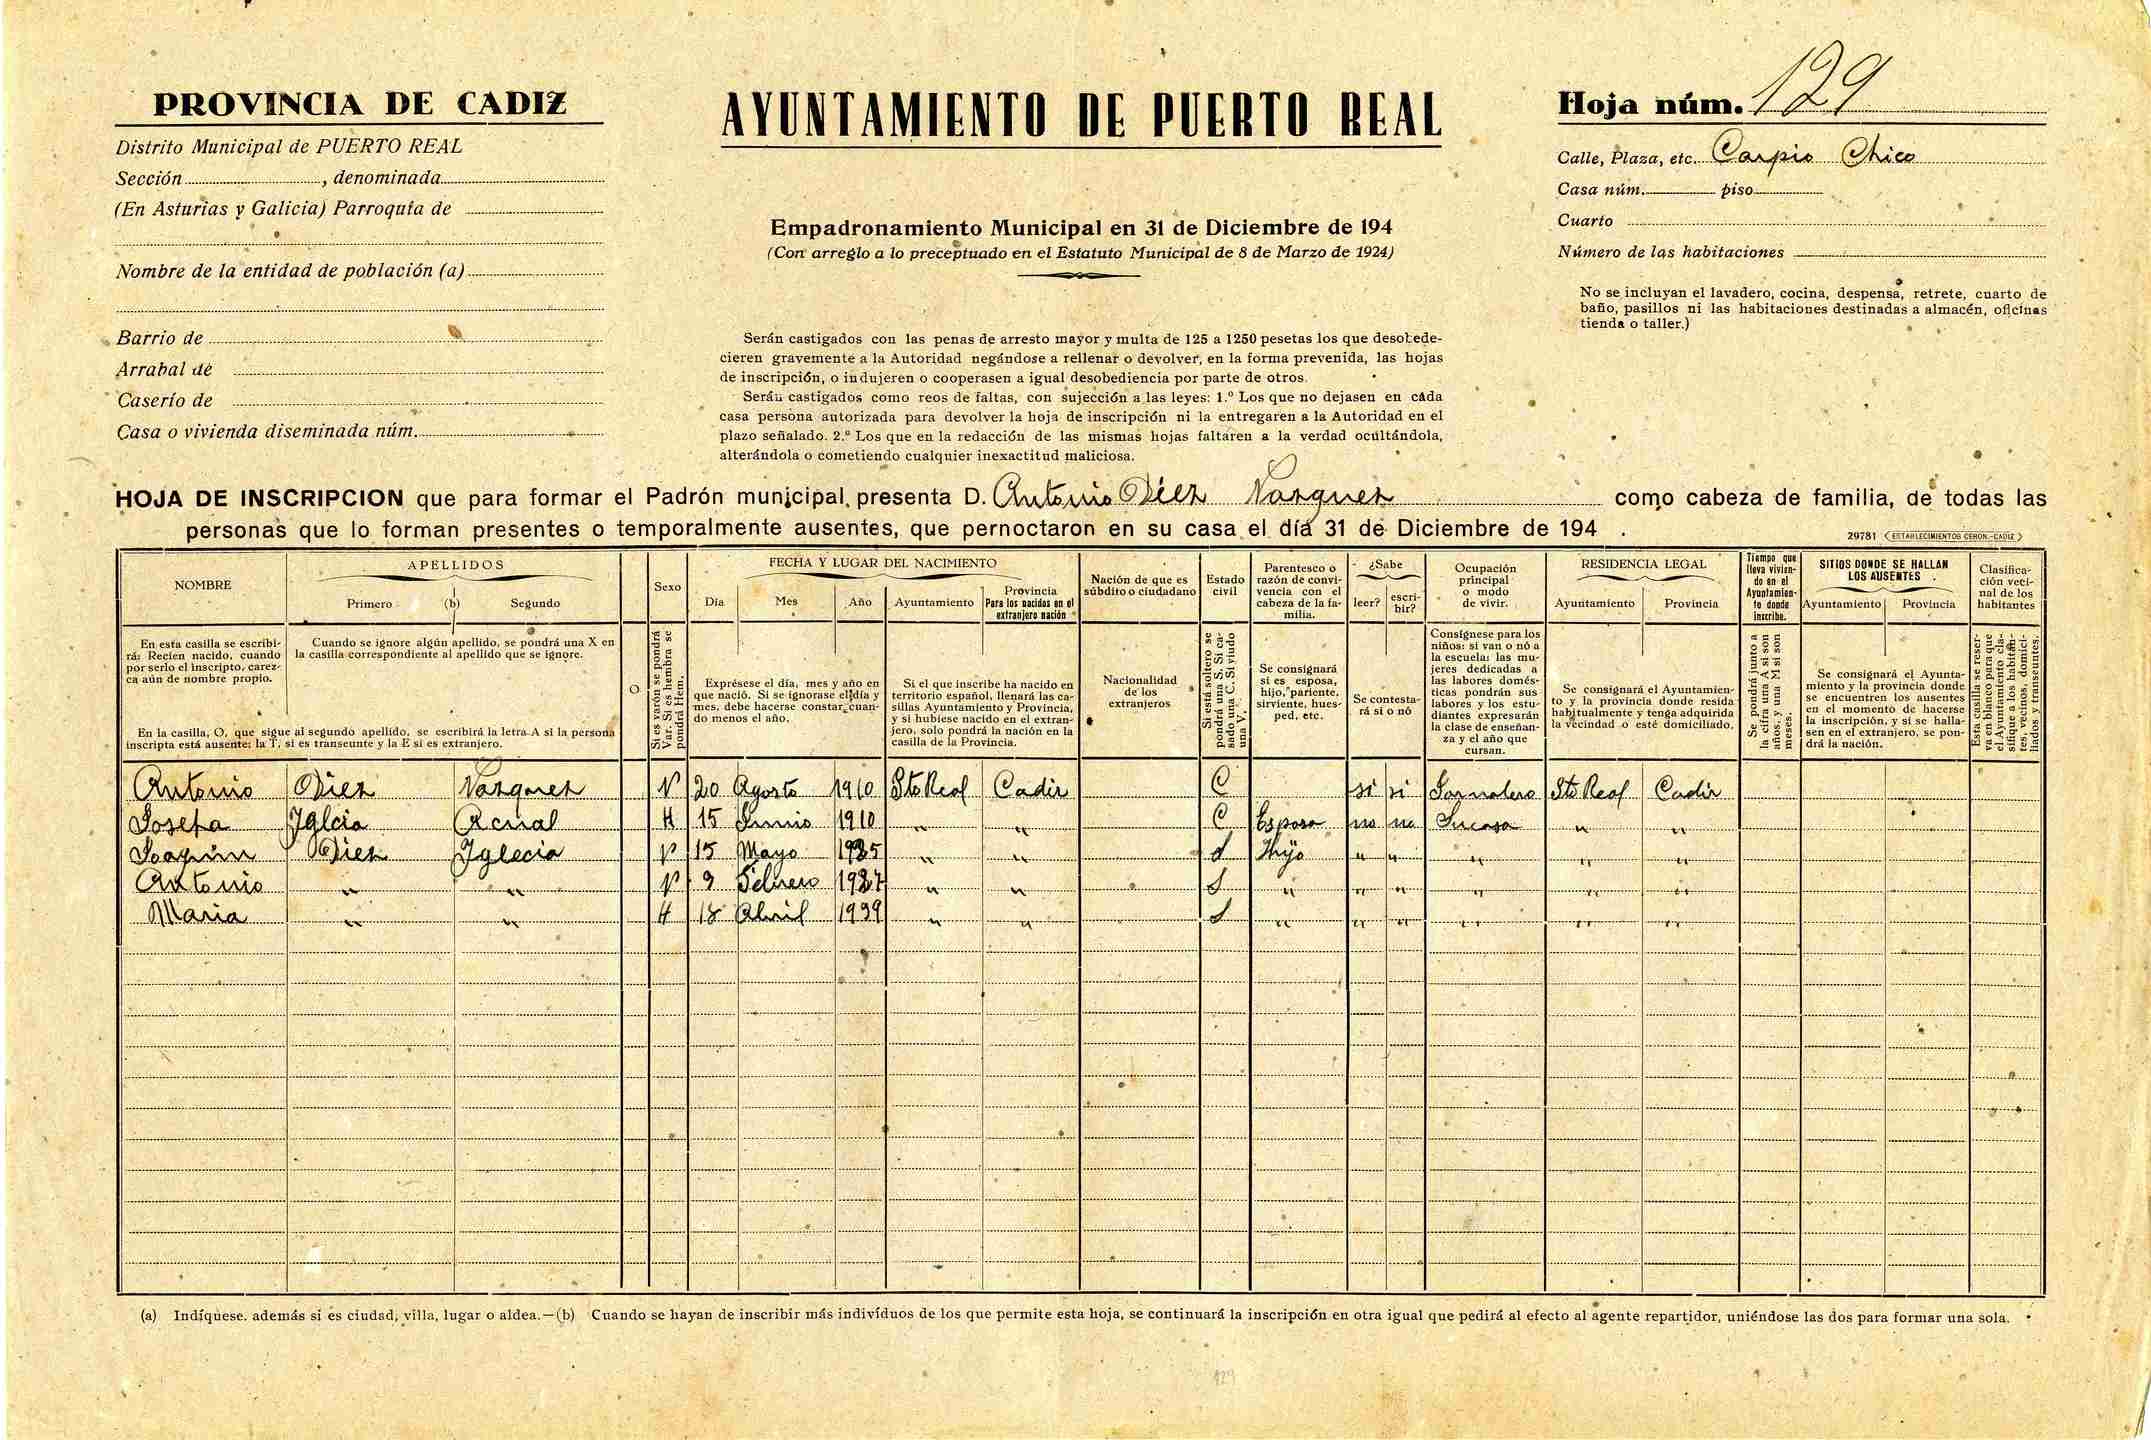 PROVINCIA DE CADIZ
Distrito Municipal de PUERTO REAL
Sección , denominada
(En Asturias y Galicia) Parroquia de
Nombre de la entidad de población (a)
Barrio de
Arrabal de
Caserío de
Casa o vivienda diseminada núm.
AYUNTAMIENTO DE PUERTO REAL
Empadronamiento Municipal en 31 de Diciembre de 194
(Con arreglo a lo preceptuado en el Estatuto Municipal de 8 de Marzo de 1924)
Serán castigados con las penas de arresto mayor y multa de 125 a 1250 pesetas los que desobede-
cieren gravemente a la Autoridad negándose a rellenar o devolver, en la forma prevenida, las hojas
de inscripción, o indujeren o cooperasen a igual desobediencia por parte de otros.
Serán castigados como reos de faltas, con sujección a las leyes: 1.º Los que no dejasen en cada
casa persona autorizada para devolver la hoja de inscripción ni la entregaren a la Autoridad en el
plazo señalado. 2.º Los que en la redacción de las mismas hojas faltaren a la verdad ocultándola,
alterándola o cometiendo cualquier inexactitud maliciosa.
Hoja núm. 129
Calle, Plaza, etc. Carpio Chico
Casa núm. piso
Cuarto
Número de las habitaciones
No se incluyan el lavadero, cocina, despensa, retrete, cuarto de
baño, pasillos ni las habitaciones destinadas a almacén, oficinas
tienda o taller.)
HOJA DE INSCRIPCION que para formar el Padrón municipal, presenta D. Antonio Díez Vazquez como cabeza de familia, de todas las
personas que lo forman presentes o temporalmente ausentes, que pernoctaron en su casa el día 31 de Diciembre de 194 .
29781 ESTABLECIMIENTOS CERON.-CADIZ
NOMBRE
APELLIDOS
Primero (b) Segundo
O
Sexo
FECHA Y LUGAR DEL NACIMIENTO
Día Mes Año Ayuntamiento
Provincia
Para los nacidos en el
extranjero nación
Nación de que es
súbdito o ciudadano
Estado
civil
Parentesco o
razón de convi-
vencia con el
cabeza de la fa-
milia.
¿Sabe
leer? escri-
bir?
Ocupación
principal
o modo
de vivir.
RESIDENCIA LEGAL
Ayuntamiento Provincia
Tiempo que
lleva vivien-
do en el
Ayuntamien-
to donde
inscribe.
SITIOS DONDE SE HALLAN
LOS AUSENTES
Ayuntamiento Provincia
Clasifica-
ción veci-
nal de los
habitantes
En esta casilla se escribi-
rá: Recien nacido, cuando
por serlo el inscripto, carez-
ca aún de nombre propio.
Cuando se ignore algún apellido, se pondrá una X en
la casilla correspondiente al apellido que se ignore.
En la casilla, O, que sigue al segundo apellido, se escribirá la letra A si la persona
inscripta está ausente; la T, si es transeunte y la E si es extranjero.
Si es varón se pondrá
Var. Si es hembra se
pondrá Hem.
Exprésese el día, mes y año en
que nació. Si se ignorase el día y
mes, debe hacerse constar cuan-
do menos el año.
Si el que inscribe ha nacido en
territorio español, llenará las ca-
sillas Ayuntamiento y Provincia,
y si hubiese nacido en el extran-
jero, solo pondrá la nación en la
casilla de la Provincia.
Nacionalidad
de los
extranjeros
Si está soltero se
pondrá una S. Si ca-
sado una C. Si viudo
una V.
Se consignará
si es esposa,
hijo, pariente,
sirviente, hues-
ped, etc.
Se contesta-
rá si o nó
Consígnese para los
niños: si van o nó a
la escuela: las mu-
jeres dedicadas a
las labores domés-
ticas pondrán sus
labores y los estu-
diantes expresarán
la clase de enseñan-
za y el año que
cursan.
Se consignará el Ayuntamien-
to y la provincia donde resida
habitualmente y tenga adquirida
la vecindad o esté domiciliado.
Se pondrá junto a
la cifra una A si son
años, y una M si son
meses.
Se consignará el Ayunta-
miento y la provincia donde
se encuentren los ausentes
en el momento de hacerse
la inscripción, y si se halla-
sen en el extranjero, se pon-
drá la nación.
Esta casilla se reser-
va en blanco para que
el Ayuntamiento cla-
sifique a los habitan-
tes, vecinos, domici-
liados y transeuntes.
Antonio Diez Vazquez V 20 Agosto 1910 Pto Real Cadiz C si si Jornalero Pto Real Cadiz
Josefa Iglcia H 15 Junio 1910 " " C Esposa no no Sucasa " "
Joaquin Diez Iglecia V 15 Mayo 1935 " " S Hijo " " " " "
Antonio " " V 9 Febrero 1937 " " S " " " " " "
Maria " " H 18 Abril 1939 " " S " " " " " "
(a) Indíquese. además si es ciudad, villa, lugar o aldea.—(b) Cuando se hayan de inscribir más indivíduos de los que permite esta hoja, se continuará la inscripción en otra igual que pedirá al efecto al agente repartidor, uniéndose las dos para formar una sola.
129